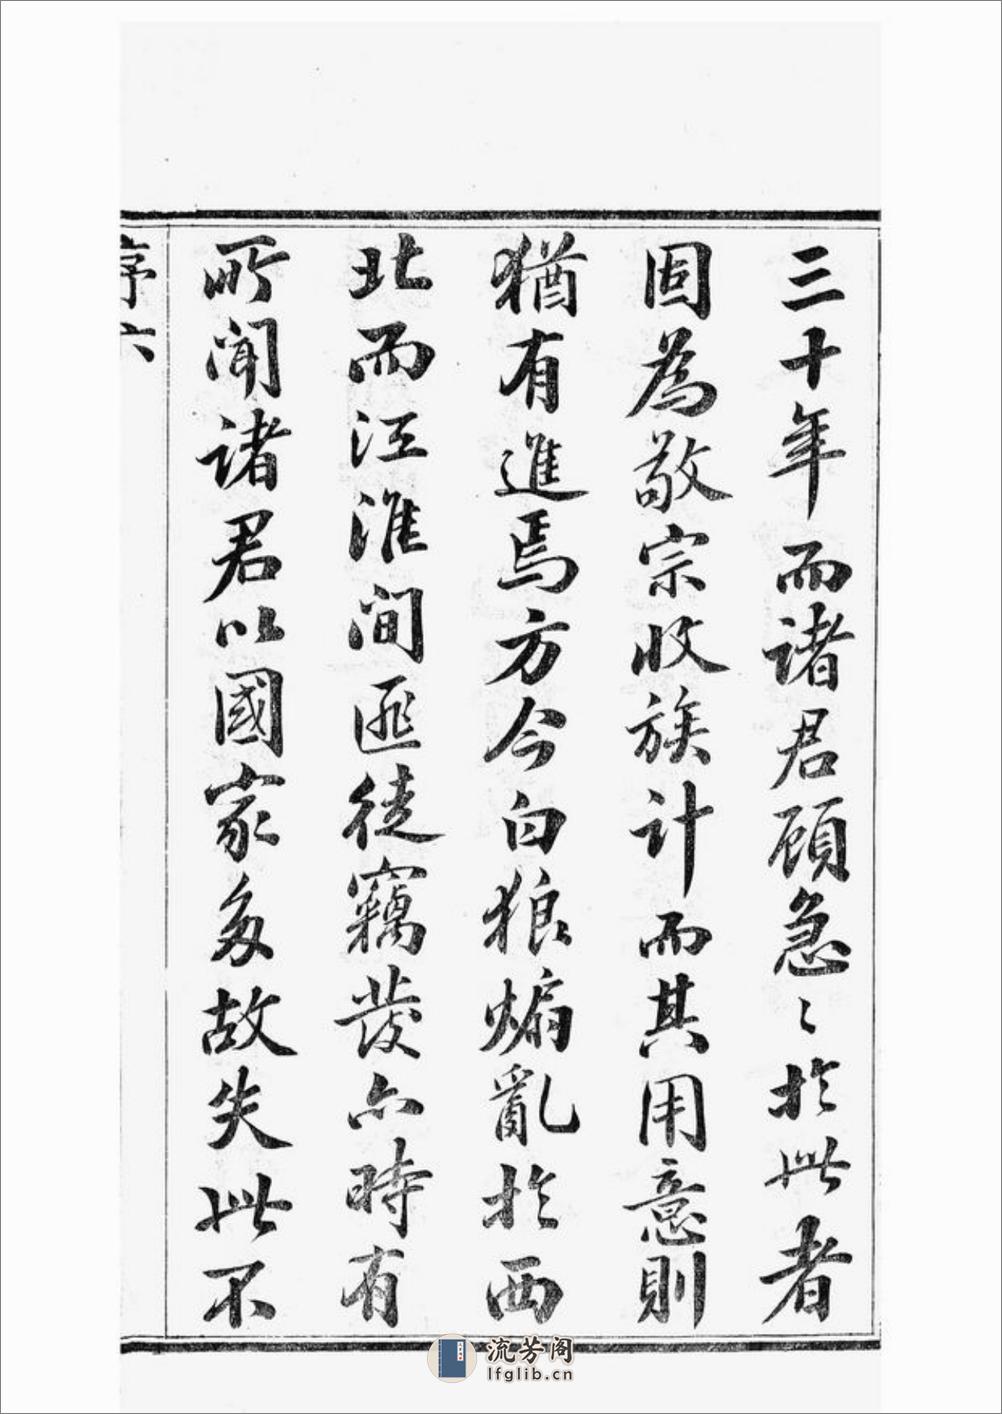 三十年而諸君顧急〻於此者
固為敬宗收族計而其用意則
猶有進焉方今白狼煽亂於西
北而江淮間匪徒竊發亦時有
所聞諸君以國家多故失此不
序六
流芳阁
lfglib.cn